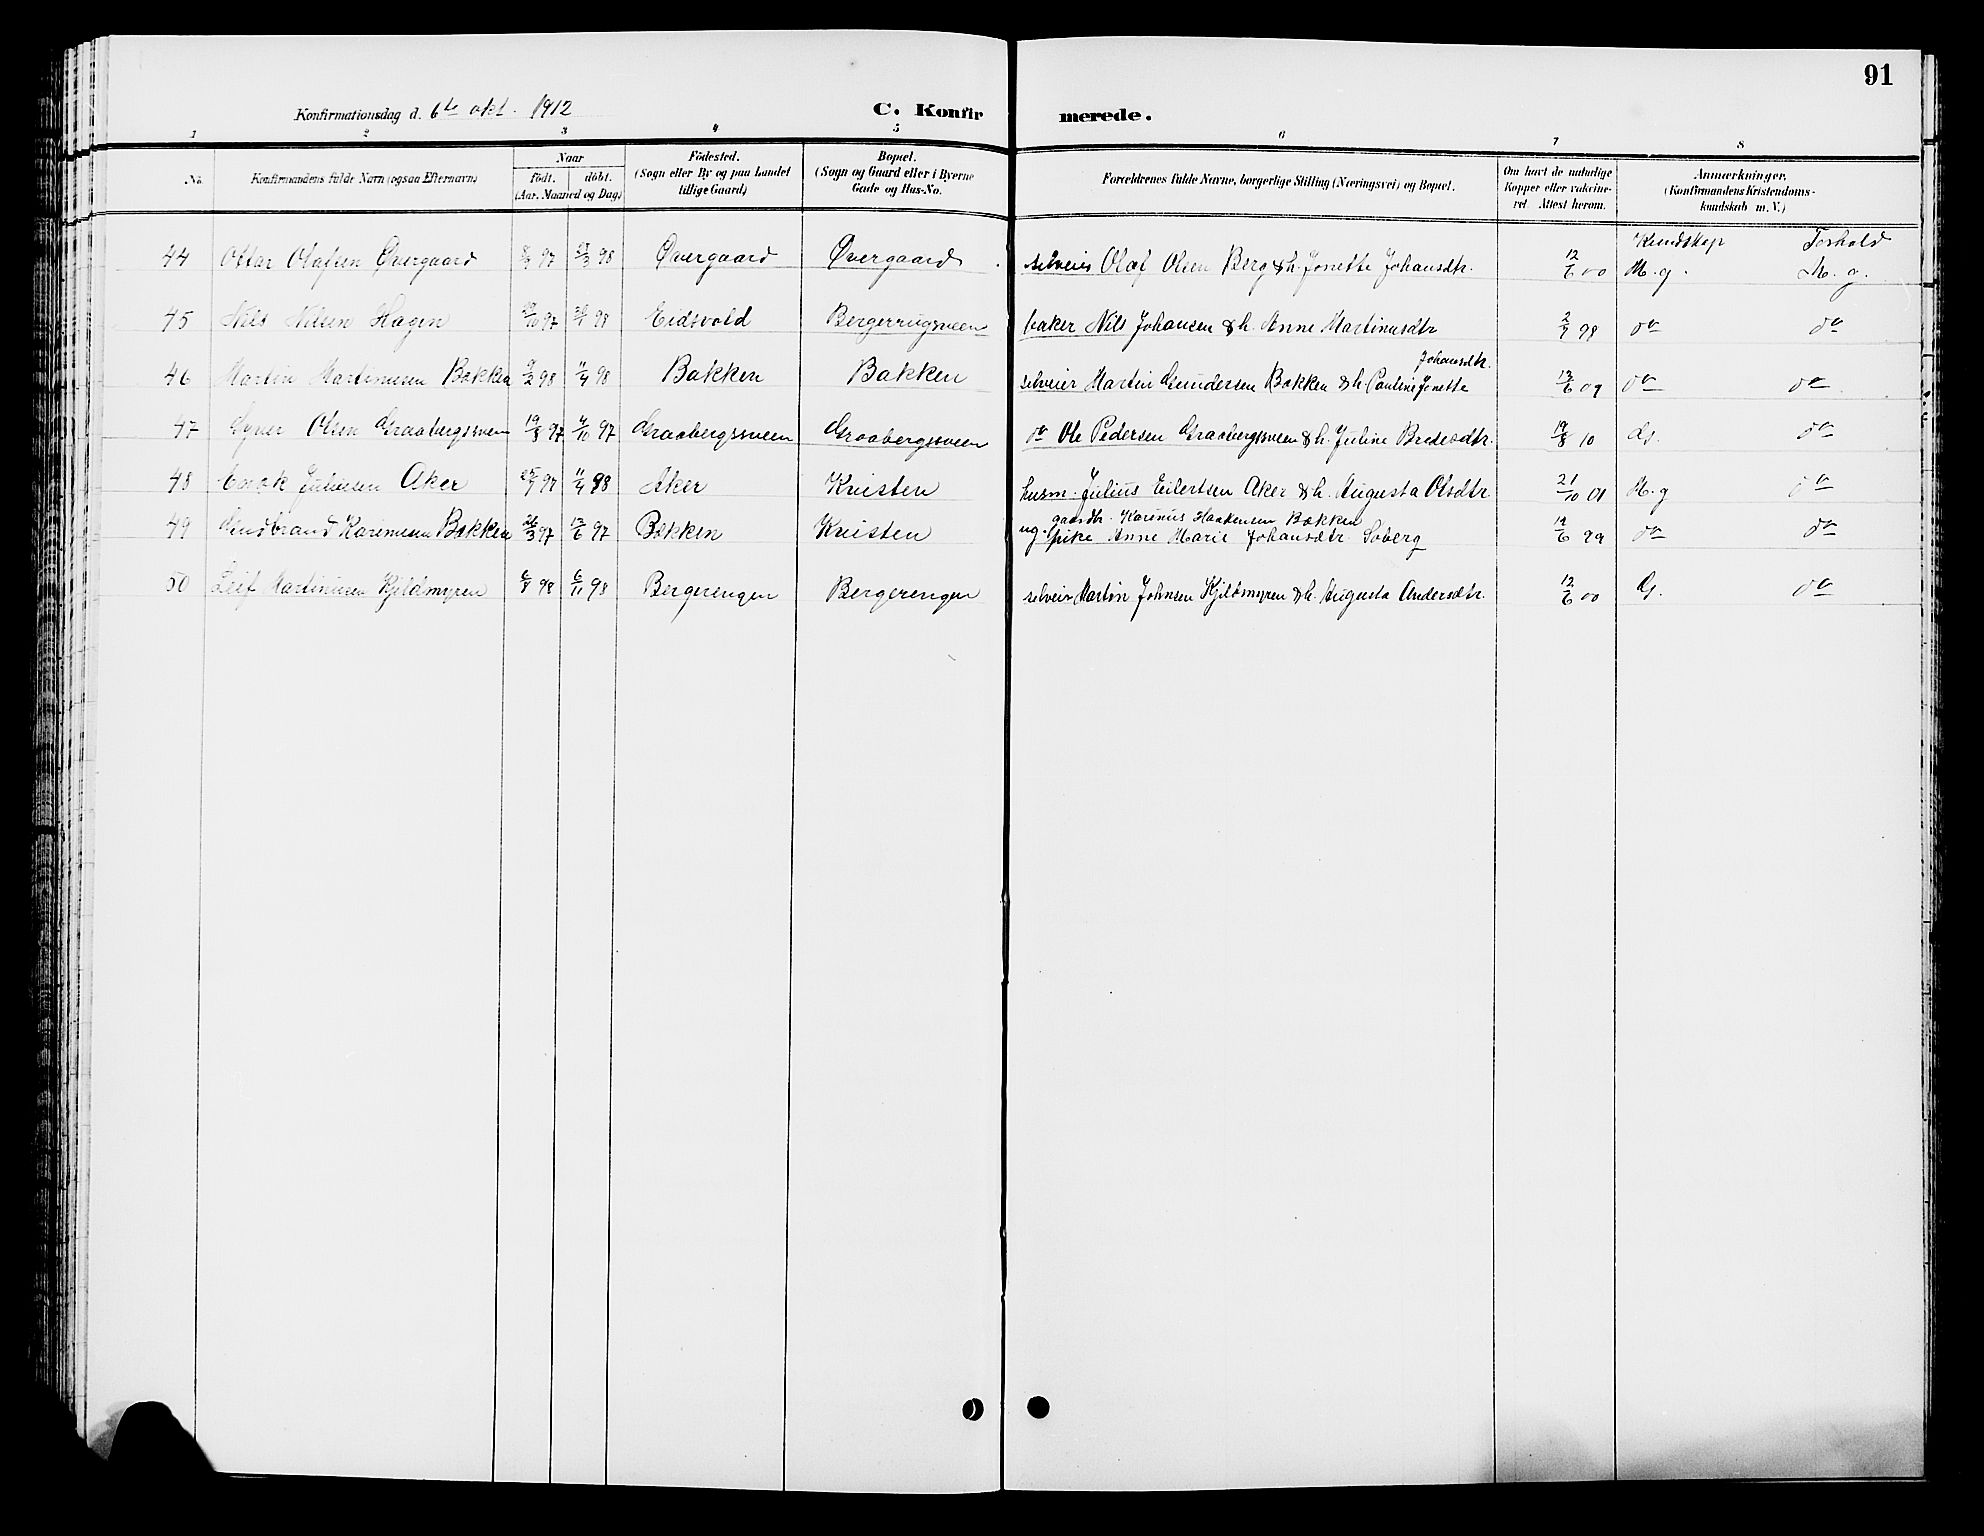 91
Konfirmationsdag d. 6te okt. 1912
C. Konfirmerede.
1 2 3 4 5 6 7 8
No.
Konfirmandens fulde Navn (ogsaa Efternavn)
Naar
födt. döbt.
(Aar. Maaned og Dag)
Födested.
(Sogn eller By og paa Landet
tillige Gaard)
Bopæl.
(Sogn og Gaard eller i Byerne
Gade og Hus-No.
Forældrenes fulde Navne, borgerlige Stilling (Næringsvei) og Bopæl.
Om havt de naturlige
Kopper eller vakcine-
ret Attest herom.
Anmærkninger.
(Konfirmandens Kristendoms-
kundskab m. V.)
Kundskap Forhold
44 Ottar Olafsen Øvergaard 97 98 Øvergaard Øvergaard selveier Olaf Olsen Berg & h. Jonette Johansdtr. 12/6 00 M. g. M. g.
45 Nils Nilsen Hagen 97 98 Eidsvold Bergerrugsveen baker Nils Johansen & h. Anne Martinusdtr 2/9 98 do do
Johansdtr.
46 Martin Martinusen Bakken 98 11/4 98 Bakken Bakken selveier Martin Gundersen Bakken & h. Pauline Jonette 09 do do
47 Olsen Graabergsveen 19/8 97 97 Graabergssveen Graabergsveen do Ole Pedersen Graabergsveen & h. Juline Bredesdtr. 19/8 10 G. do
48 Enok Juliusen Aker 97 11/4 98 Aker Knisten husm. Julius Eilertsen Aker & h. Augusta Olsdtr. 21/10 01 M. g do
gaardbr. Karinus Haakensen Bakken
49 Gudbrand Karinusen Bakken 26/3 97 97 Bakken Knisten ug. pike Anne Marie Johansdtr. Soberg 99 do do
50 Leif Martinusen Kjildmyren 6/8 98 6/11 98 Bergerengen Bergerengen selveier Martin Johnsen Kjildmyren & h. Augusta Andersdtr. 12/6 00 G. do